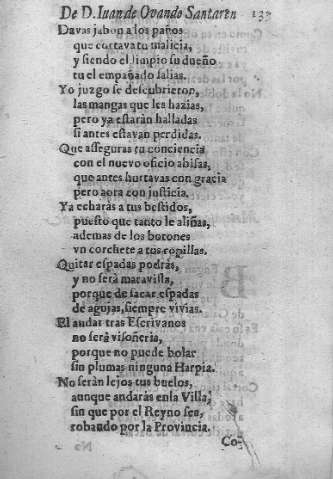 De D. Iuan de Ovando Santaren 137
Davas jabon a los paños
que cortava tu malicia,
y siendo el limpio su dueño
tu el empañado salias.
Yo juzgo se descubrieron,
las mangas que les hazias,
pero ya estaràn halladas
si antes estavan perdidas.
Que asseguras tu conciencia
con el nuevo oficio abisas,
que antes hurtavas con gracia
pero aora con justicia.
Ya echaràs a tus bestidos,
puesto que tanto le aliñas,
ademas de los botones
vn corchete a tus ropillas.
Quitar espadas podràs,
y no serà maravilla,
porque de sacar espadas
de agujas, siempre vivias.
El andar tras Escrivanos
no serà visoñeria,
porque no puede bolar
sin plumas ninguna Harpia.
No seràn lejos tus buelos,
aunque andaràs en la Villa,
sin que por el Reyno sea,
robando por la Provincia.
Co-